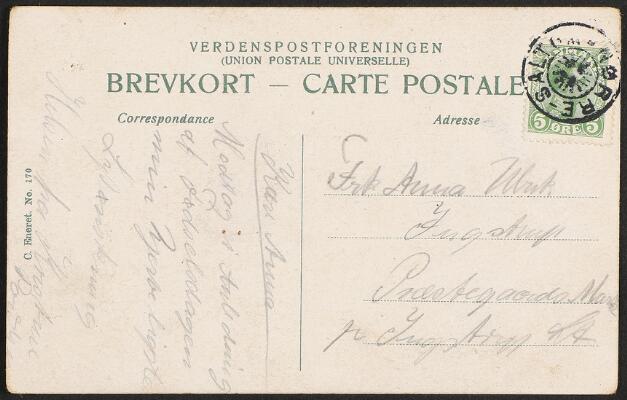 VERDENSPOSTFORENINGEN
(UNION POSTALE UNIVERSELLE)
BREVKORT — CARTE POSTALE
Correspondance
Adresse
5 ØRE 5
C. Eneret. No. 170
Kære Anna
Modtag i Anledning
af Fødselsdagen
min hjerteligste
Lykønskning
Hilsen fra
Frk Anna
Ingstrup
Præstegaards Mark
pr Ingstrup St